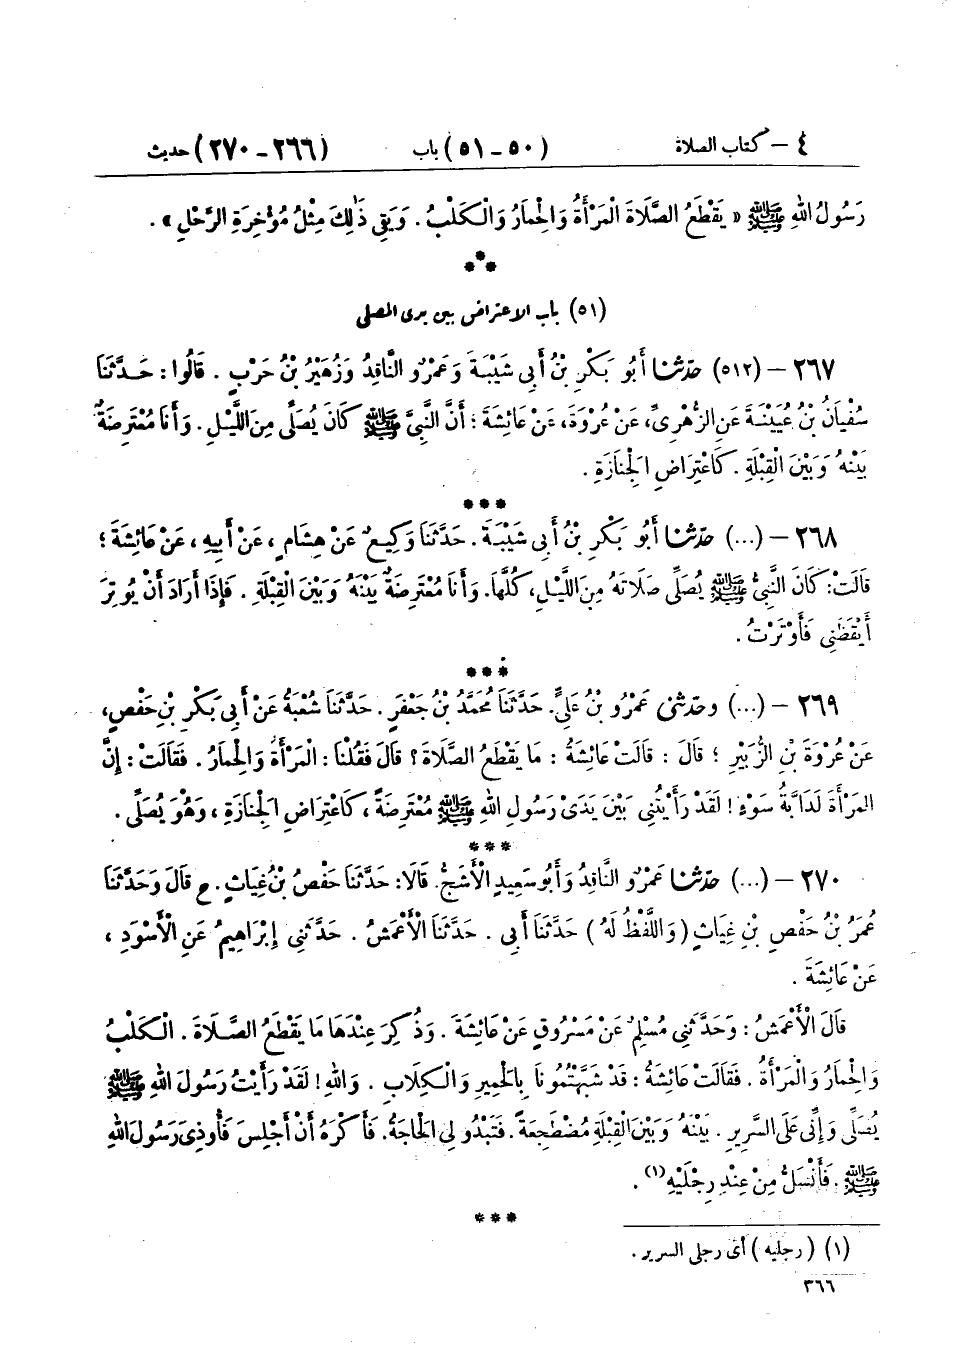 ٤ – كتاب الصلاة (٥٠ – ٥١) باب (٢٦٦ – ٢٧٠) حديث
رَسُولُ اللهِ ﷺ « يَقْطَعُ الصَّلَاةَ الْمَرْأَةُ وَالْحِمَارُ وَالْكَلْبُ . وَيَقِي ذَٰلِكَ مِثْلُ مُؤْخِرَةِ الرَّحْلِ » .
***
(٥١) باب الاعتراض بين يدى المصلى
٢٦٧ – (٥١٢) حَدَّثَنَا أَبُو بَكْرِ بْنُ أَبِي شَيْبَةَ وَعَمْرٌو النَّاقِدُ وَزُهَيْرُ بْنُ حَرْبٍ . قَالُوا : حَدَّثَنَا
سُفْيَانُ بْنُ عُيَيْنَةَ عَنِ الزُّهْرِيِّ ، عَنْ عُرْوَةَ ، عَنْ عَائِشَةَ ؛ أَنَّ النَّبِيَّ ﷺ كَانَ يُصَلِّي مِنَ اللَّيْلِ . وَأَنَا مُعْتَرِضَةٌ
بَيْنَهُ وَبَيْنَ الْقِبْلَةِ . كَاعْتِرَاضِ الْجِنَازَةِ .
***
٢٦٨ – (...) حَدَّثَنَا أَبُو بَكْرِ بْنُ أَبِي شَيْبَةَ . حَدَّثَنَا وَكِيعٌ عَنْ هِشَامٍ ، عَنْ أَبِيهِ ، عَنْ عَائِشَةَ ؛
قَالَتْ : كَانَ النَّبِيُّ ﷺ يُصَلِّي صَلَاتَهُ مِنَ اللَّيْلِ ، كُلَّهَا . وَأَنَا مُعْتَرِضَةٌ بَيْنَهُ وَبَيْنَ الْقِبْلَةِ . فَإِذَا أَرَادَ أَنْ يُوتِرَ
أَيْقَظَنِي فَأَوْتَرْتُ .
***
٢٦٩ – (...) وحَدَّثَنِي عَمْرُو بْنُ عَلِيٍّ . حَدَّثَنَا مُحَمَّدُ بْنُ جَعْفَرٍ . حَدَّثَنَا شُعْبَةُ عَنْ أَبِي بَكْرِ بْنِ حَفْصٍ ،
عَنْ عُرْوَةَ بْنِ الزُّبَيْرِ ؛ قَالَ : قَالَتْ عَائِشَةُ : مَا يَقْطَعُ الصَّلَاةَ ؟ قَالَ فَقُلْنَا : الْمَرْأَةُ وَالْحِمَارُ . فَقَالَتْ : إِنَّ
الْمَرْأَةَ لَدَابَّةُ سَوْءٍ ! لَقَدْ رَأَيْتُنِي بَيْنَ يَدَيْ رَسُولِ اللهِ ﷺ مُعْتَرِضَةً ، كَاعْتِرَاضِ الْجِنَازَةِ ، وَهُوَ يُصَلِّي .
***
٢٧٠ – (...) حَدَّثَنَا عَمْرٌو النَّاقِدُ وَأَبُو سَعِيدٍ الْأَشَجُّ . قَالَا : حَدَّثَنَا حَفْصُ بْنُ غِيَاثٍ . ح قَالَ وَحَدَّثَنَا
عُمَرُ بْنُ حَفْصِ بْنِ غِيَاثٍ ( وَاللَّفْظُ لَهُ ) حَدَّثَنَا أَبِي . حَدَّثَنَا الْأَعْمَشُ . حَدَّثَنِي إِبْرَاهِيمُ عَنِ الْأَسْوَدِ ،
عَنْ عَائِشَةَ .
قَالَ الْأَعْمَشُ : وَحَدَّثَنِي مُسْلِمٌ عَنْ مَسْرُوقٍ عَنْ عَائِشَةَ . وَذُكِرَ عِنْدَهَا مَا يَقْطَعُ الصَّلَاةَ . الْكَلْبُ
وَالْحِمَارُ وَالْمَرْأَةُ . فَقَالَتْ عَائِشَةُ : قَدْ شَبَّهْتُمُونَا بِالْحَمِيرِ وَالْكِلَابِ . وَاللهِ ! لَقَدْ رَأَيْتُ رَسُولَ اللهِ ﷺ
يُصَلِّي وَإِنِّي عَلَى السَّرِيرِ . بَيْنَهُ وَبَيْنَ الْقِبْلَةِ مُضْطَجِعَةً . فَتَبْدُو لِيَ الْحَاجَةُ . فَأَكْرَهُ أَنْ أَجْلِسَ فَأُوذِيَ رَسُولَ اللهِ
ﷺ . فَأَنْسَلُّ مِنْ عِنْدِ رِجْلَيْهِ (١) .
***
(١) ( رجليه ) أى رجلى السرير .
٣٦٦